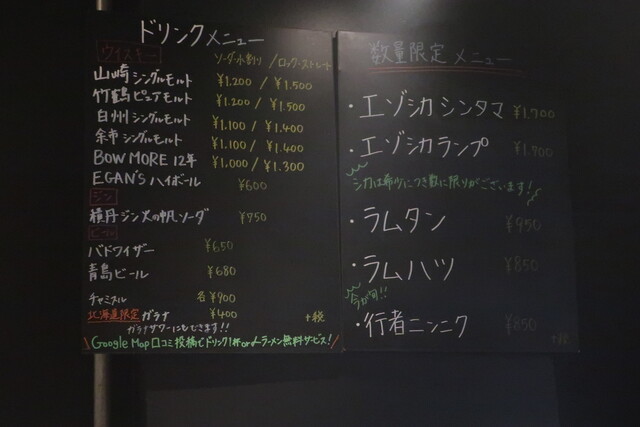 ドリンクメニュー
ウイスキー ソーダ・水割り / ロック・ストレート
山崎シングルモルト ¥1.200 / ¥1.500
竹鶴ピュアモルト ¥1.200 / ¥1.500
白州シングルモルト ¥1.100 / ¥1.400
余市シングルモルト ¥1.100 / ¥1.400
BOWMORE 12年 ¥1,000 / ¥1.300
EGAN'S ハイボール ¥600
ジン
積丹ジン火の帆ソーダ ¥750
ビール
バドワイザー ¥650
青島ビール ¥680
チャミスル 各¥900
北海道限定 ガラナ ¥400 +税
ガラナサワーにもできます!!
\ Google Map口コミ投稿でドリンク1杯or人ラーメン無料サービス! /
数量限定メニュー
・エゾシカシンタマ ¥1.700
・エゾシカランプ ¥1.700
シカは希少につき数に限りがございます!
・ラムタン ¥950
・ラムハツ ¥850
今が旬!!
・行者ニンニク ¥850
+税